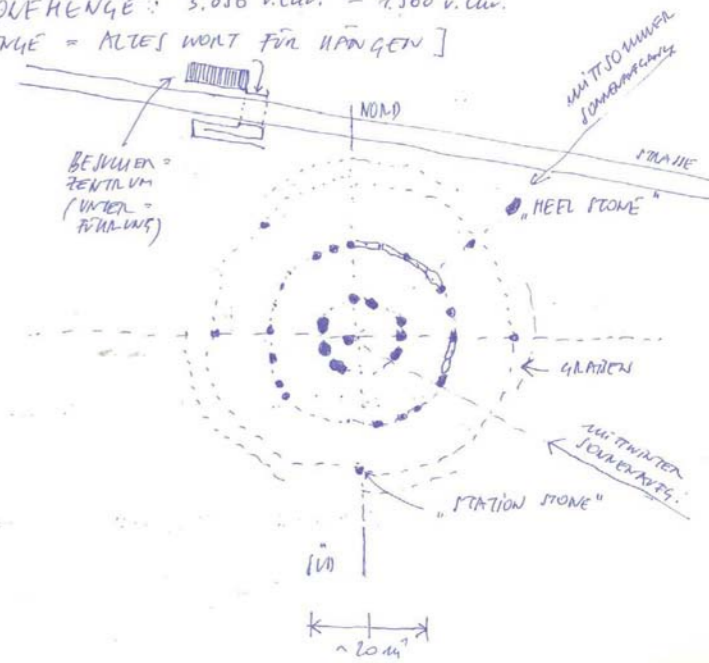 ONEHENGE : 3.050 v.Chr. – 1.500 v.Chr.
ENGE = ALTES WORT FÜR HÄNGEN ]
MITTSOMMER
SONNENAUFGANG
NORD
STRASSE
BESUCHER=
ZENTRUM
(UNTER=
FÜHRUNG)
„HEEL STONE"
GRABEN
MITTWINTER
SONNENAUFG.
„STATION STONE"
SÜD
~ 20 m